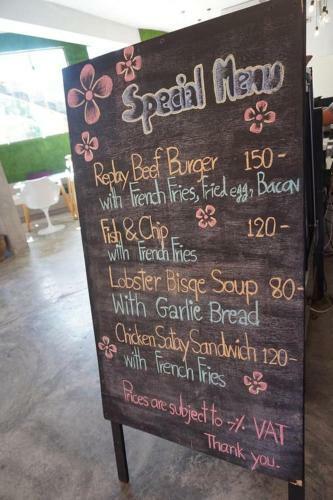 Special Menu
Replay Beef Burger 150-
with French Fries, Fried egg, Bacon
Fish & Chip 120-
with French Fries
Lobster Bisqe Soup 80-
With Garlic Bread
Chicken Satay Sandwich 120-
with French Fries
Prices are subject to -% VAT
Thank you.